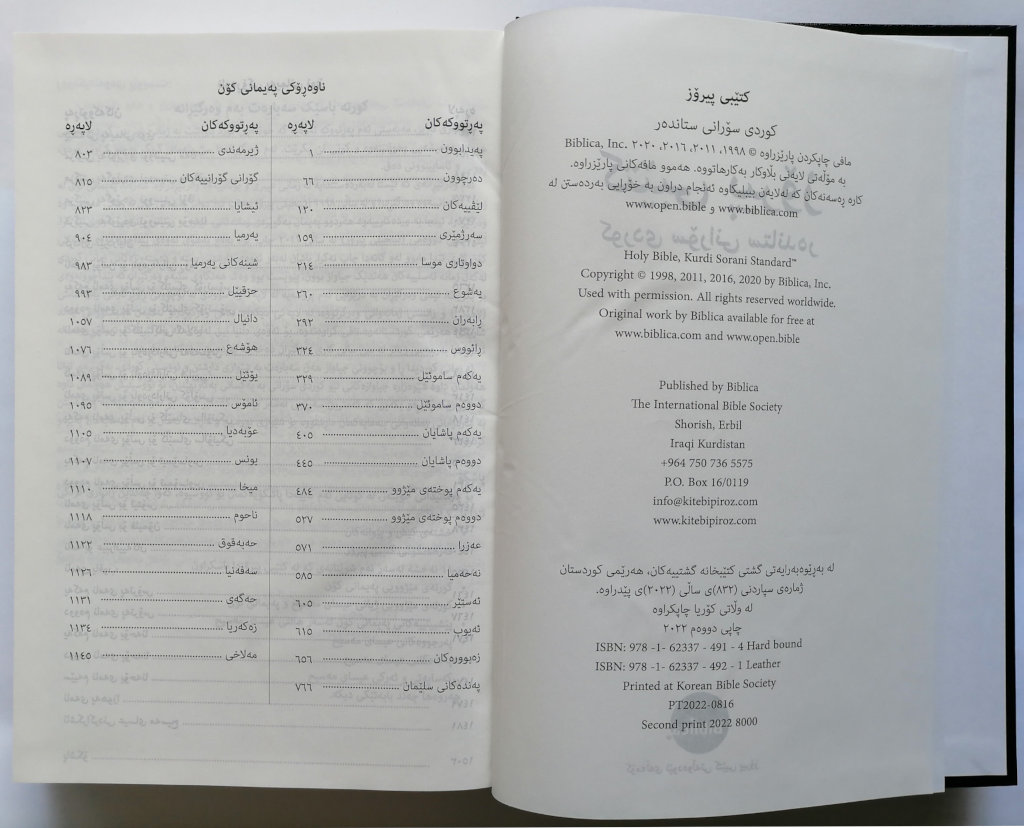 کتێبی پیرۆز
کوردی سۆرانی ستاندەر
مافی چاپکردن پارێزراوە © ١٩٩٨، ٢٠١١، ٢٠١٦، ٢٠٢٠ Biblica, Inc.
بە مۆڵەتی لایەنی بڵاوکار بەکارهاتووە. هەموو مافەکانی پارێزراوە.
کارە ڕەسەنەکان کە لەلایەن بیبلیکاوە ئەنجام دراون بە خۆڕایی بەردەستن لە
www.biblica.com و www.open.bible
Holy Bible, Kurdi Sorani Standard™
Copyright © 1998, 2011, 2016, 2020 by Biblica, Inc.
Used with permission. All rights reserved worldwide.
Original work by Biblica available for free at
www.biblica.com and www.open.bible
Published by Biblica
The International Bible Society
Shorish, Erbil
Iraqi Kurdistan
+964 750 736 5575
P.O. Box 16/0119
info@kitebipiroz.com
www.kitebipiroz.com
لە بەڕێوەبەرایەتی گشتی کتێبخانە گشتییەکان، هەرێمی کوردستان
ژمارەی سپاردنی (٨٣٢)ی ساڵی (٢٠٢٢)ی پێدراوە.
لە وڵاتی کۆریا چاپکراوە
چاپی دووەم ٢٠٢٢
ISBN: 978 -1- 62337 - 491 - 4 Hard bound
ISBN: 978 -1- 62337 - 492 - 1 Leather
Printed at Korean Bible Society
PT2022-0816
Second print 2022 8000
ناوەڕۆکی پەیمانی کۆن
پەرتووکەکان لاپەڕە
پەیدابوون ١
دەرچوون ٦٦
لێڤییەکان ١٢٠
سەرژمێری ١٥٩
دواوتاری موسا ٢١٤
یەشوع ٢٦٠
ڕابەران ٢٩٢
ڕائووس ٣٢٤
یەکەم ساموئێل ٣٢٩
دووەم ساموئێل ٣٧٠
یەکەم پاشایان ٤٠٥
دووەم پاشایان ٤٤٥
یەکەم پوختەی مێژوو ٤٨٤
دووەم پوختەی مێژوو ٥٢٧
عەزرا ٥٧١
نەحەمیا ٥٨٥
ئەستێر ٦٠٥
ئەیوب ٦١٥
زەبوورەکان ٦٥٦
پەندەکانی سلێمان ٧٦٦
پەرتووکەکان لاپەڕە
ژیرمەندی ٨٠٣
گۆرانی گۆرانییەکان ٨١٥
ئیشایا ٨٢٣
یەرمیا ٩٠٤
شینەکانی یەرمیا ٩٨٣
حزقیێل ٩٩٣
دانیال ١٠٥٧
هۆشەع ١٠٧٦
یۆئێل ١٠٨٩
ئامۆس ١٠٩٥
عۆبەدیا ١١٠٥
یونس ١١٠٧
میخا ١١١٠
ناحوم ١١١٨
حەبەقوق ١١٢٢
سەفەنیا ١١٢٦
حەگەی ١١٣١
زەکەریا ١١٣٤
مەلاخی ١١٤٥